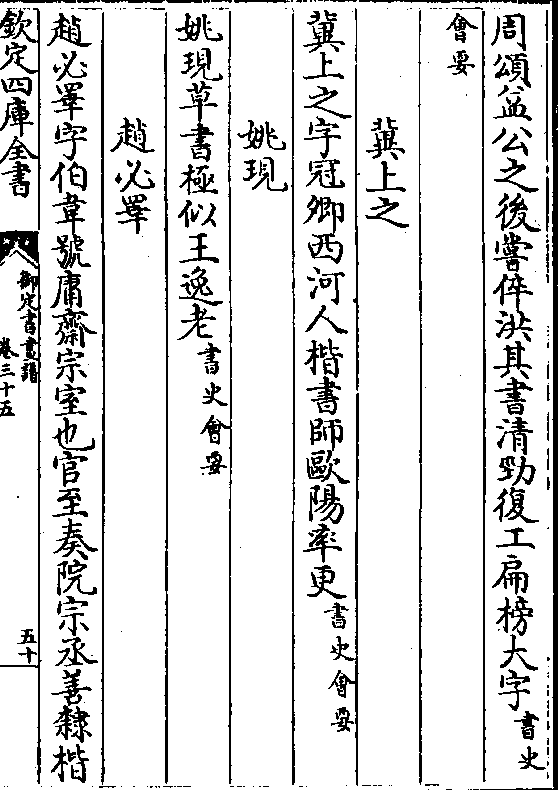 周頌益公之後嘗倅洪其書清勁復工扁榜大字書史
會要
冀上之
冀上之字冠卿西河人楷書師歐陽率更書史會要
姚現
姚現草書極似王逸老書史會要
趙必㚖
趙必㚖字伯韋號庸齋宗室也官至奏院宗丞善隸楷
欽定四庫全書
御定書畫譜
卷三十五
五十